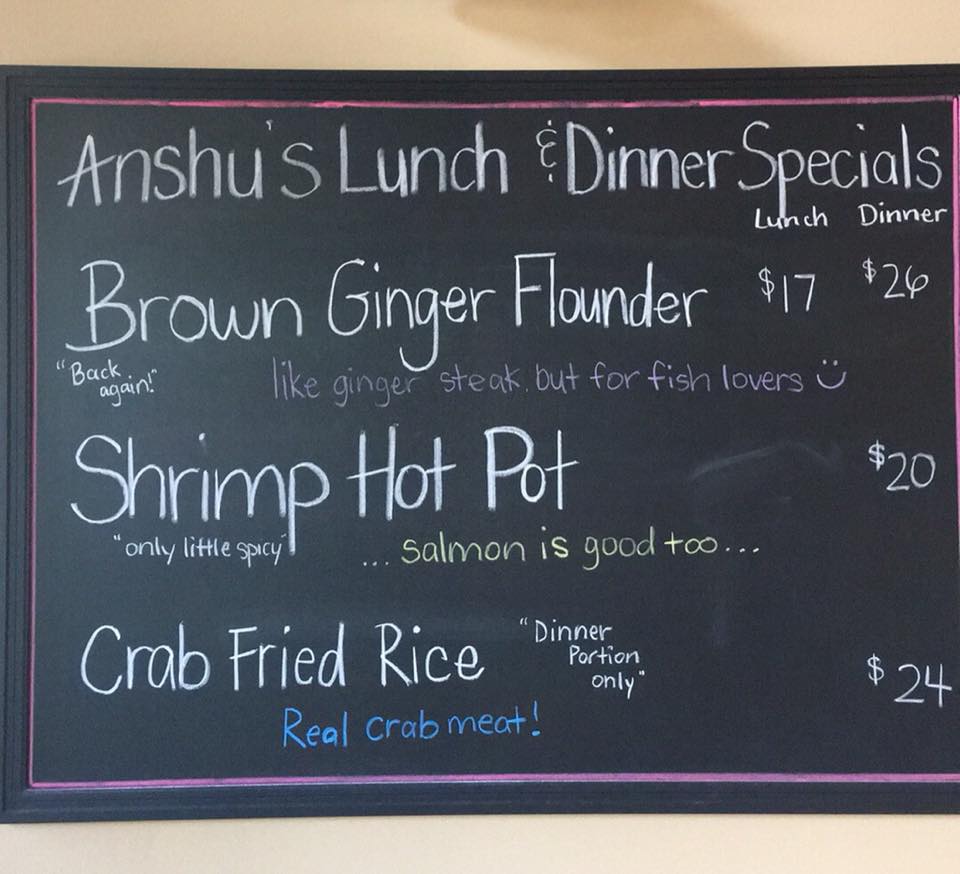 Anshu's Lunch & Dinner Specials
Lunch Dinner
Brown Ginger Flounder $17 $26
"Back again!"
like ginger steak. but for fish lovers
Shrimp Hot Pot $20
"only little spicy"
...salmon is good too...
Crab Fried Rice
"Dinner
Portion
only"
$24
Real crab meat!